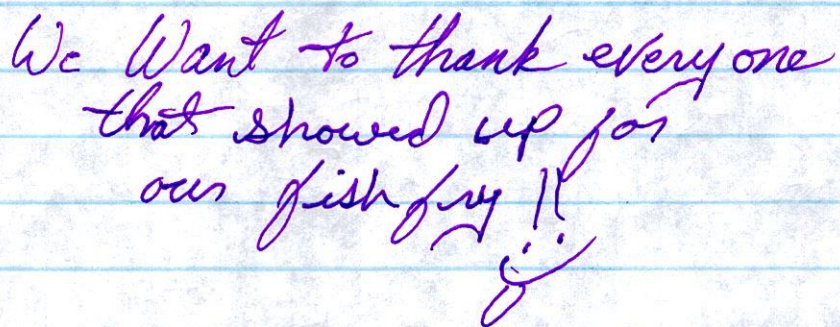 We Want to thank everyone
that showed up for
our fish fry!!